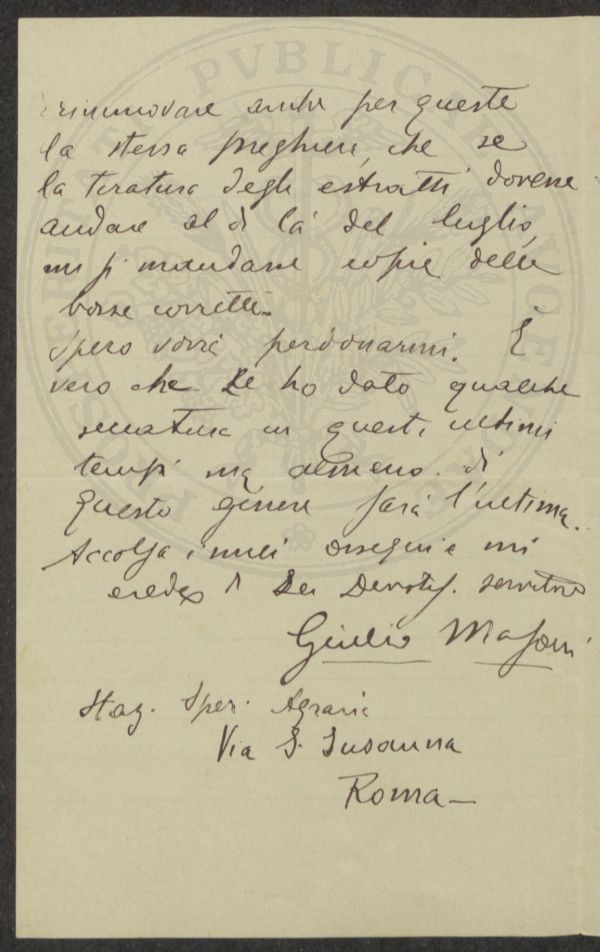 rinnovare anche per queste
la stessa preghiera, che se
la tiratura degli estratti dovesse
andare al di là del luglio
mi si mandasse copie delle
borse corrette.
Spero vorrà perdonarmi. È
vero che Le ho dato qualche
seccatura in questi ultimi
tempi ma almeno di
questo genere sarà l'ultima.
Accolga i miei ossequi e mi
creda di Lei Devotis. servitore
Giulio Masoni
Staz. Sper. Agraria
Via S. Susanna
Roma—
PVBLICI